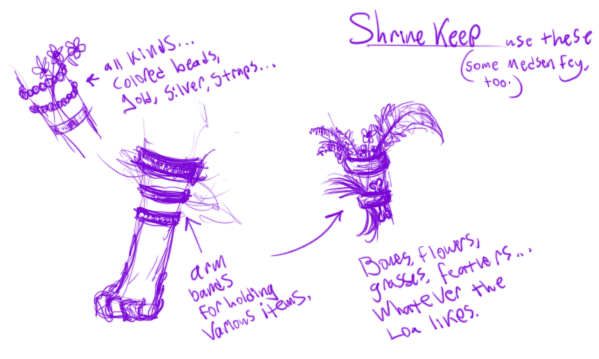 Shrine Keep use these
(some Medsen fey,
too.)
all kinds...
colored beads,
gold, silver, straps...
arm
bands
for holding
various items.
Bones, flowers,
grasses, feathers...
Whatever the
Loa likes.